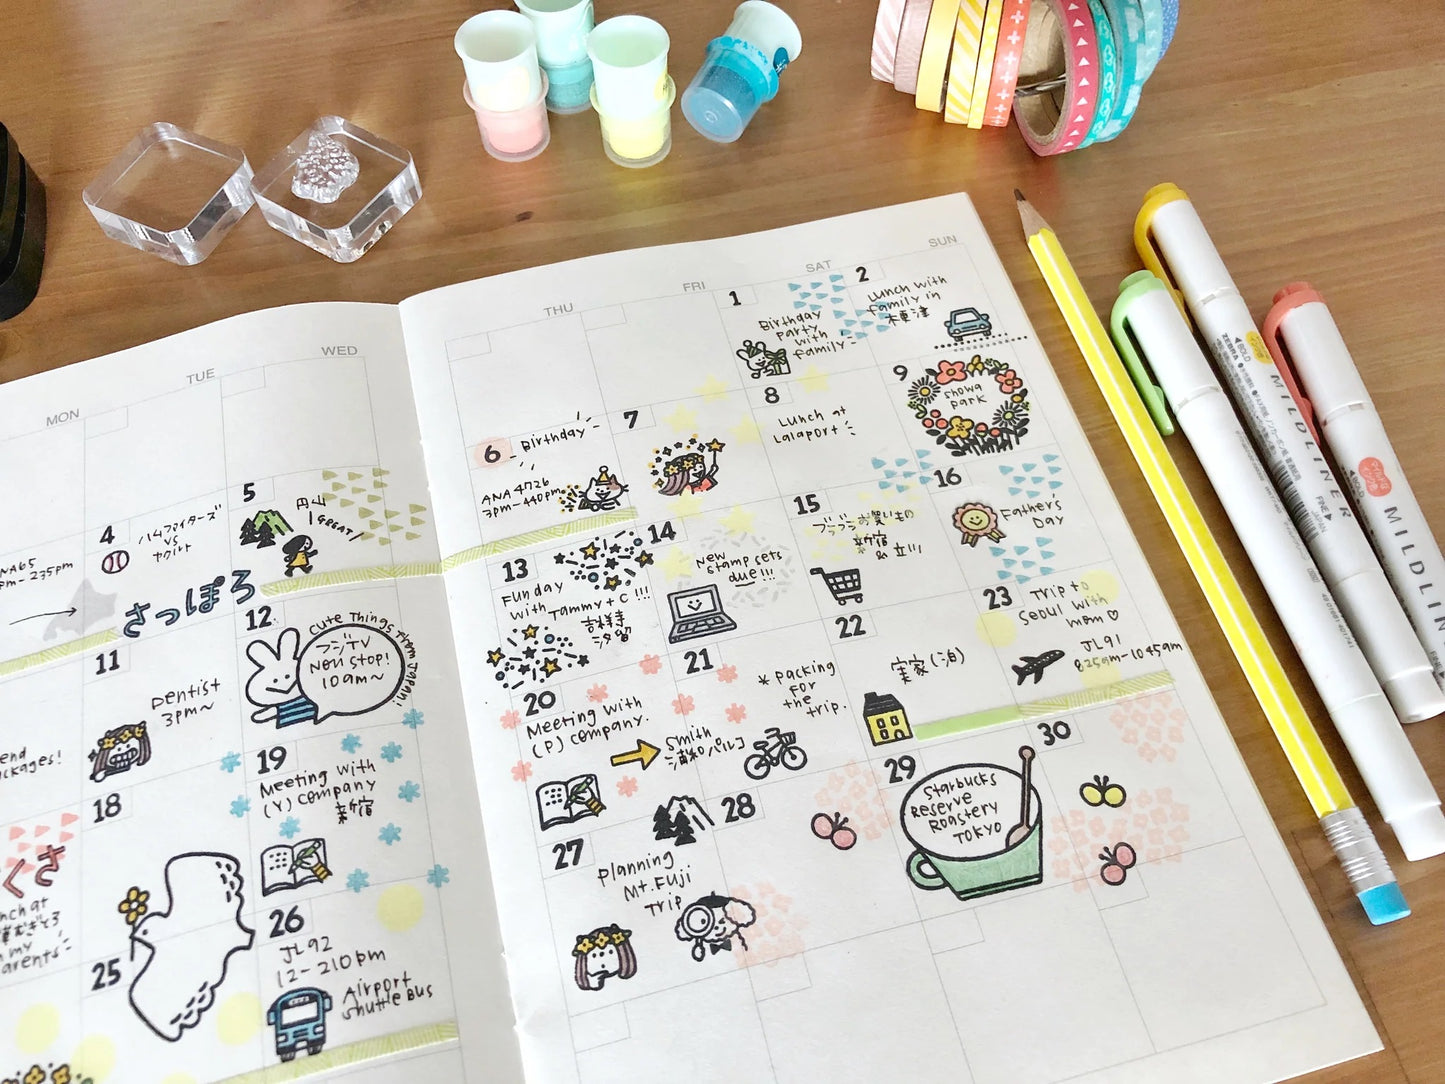 MON
TUE
WED
THU
FRI
SAT
SUN
1
Birthday
party
with
family
2
Lunch with
family in
木更津
4
ハムファイターズ
vs
ヤクルト
5
円山
GREAT!
さっぽろ
6
Birthday
ANA 4726
3pm-440pm
7
8
Lunch at
Lalaport
9
Showa
park
11
Dentist
3pm~
12
Cute Things from Japan!
フジTV
Non stop!
10am~
13
Fun day
with
Tammy + C !!!
吉祥寺
汐留
14
New
stamp sets
due!!!
15
ブラブラお買いもの
新宿
& 立川
16
Father's
Day
18
19
Meeting with
(Y) company
新宿
20
Meeting with
(P) company.
21
Smith
浦和パルコ
* packing
for
the
trip.
22
実家(泊)
23
Trip to
Seoul with
mom ♡
JL91
825am-1045am
25
26
JL92
12-210pm
Airport
Shuttle Bus
27
planning
Mt. Fuji
Trip
28
29
Starbucks
Reserve
Roastery
TOKYO
30
ZEBRA
BOLD
MILDLINER
FINE
JAPAN
BOLD